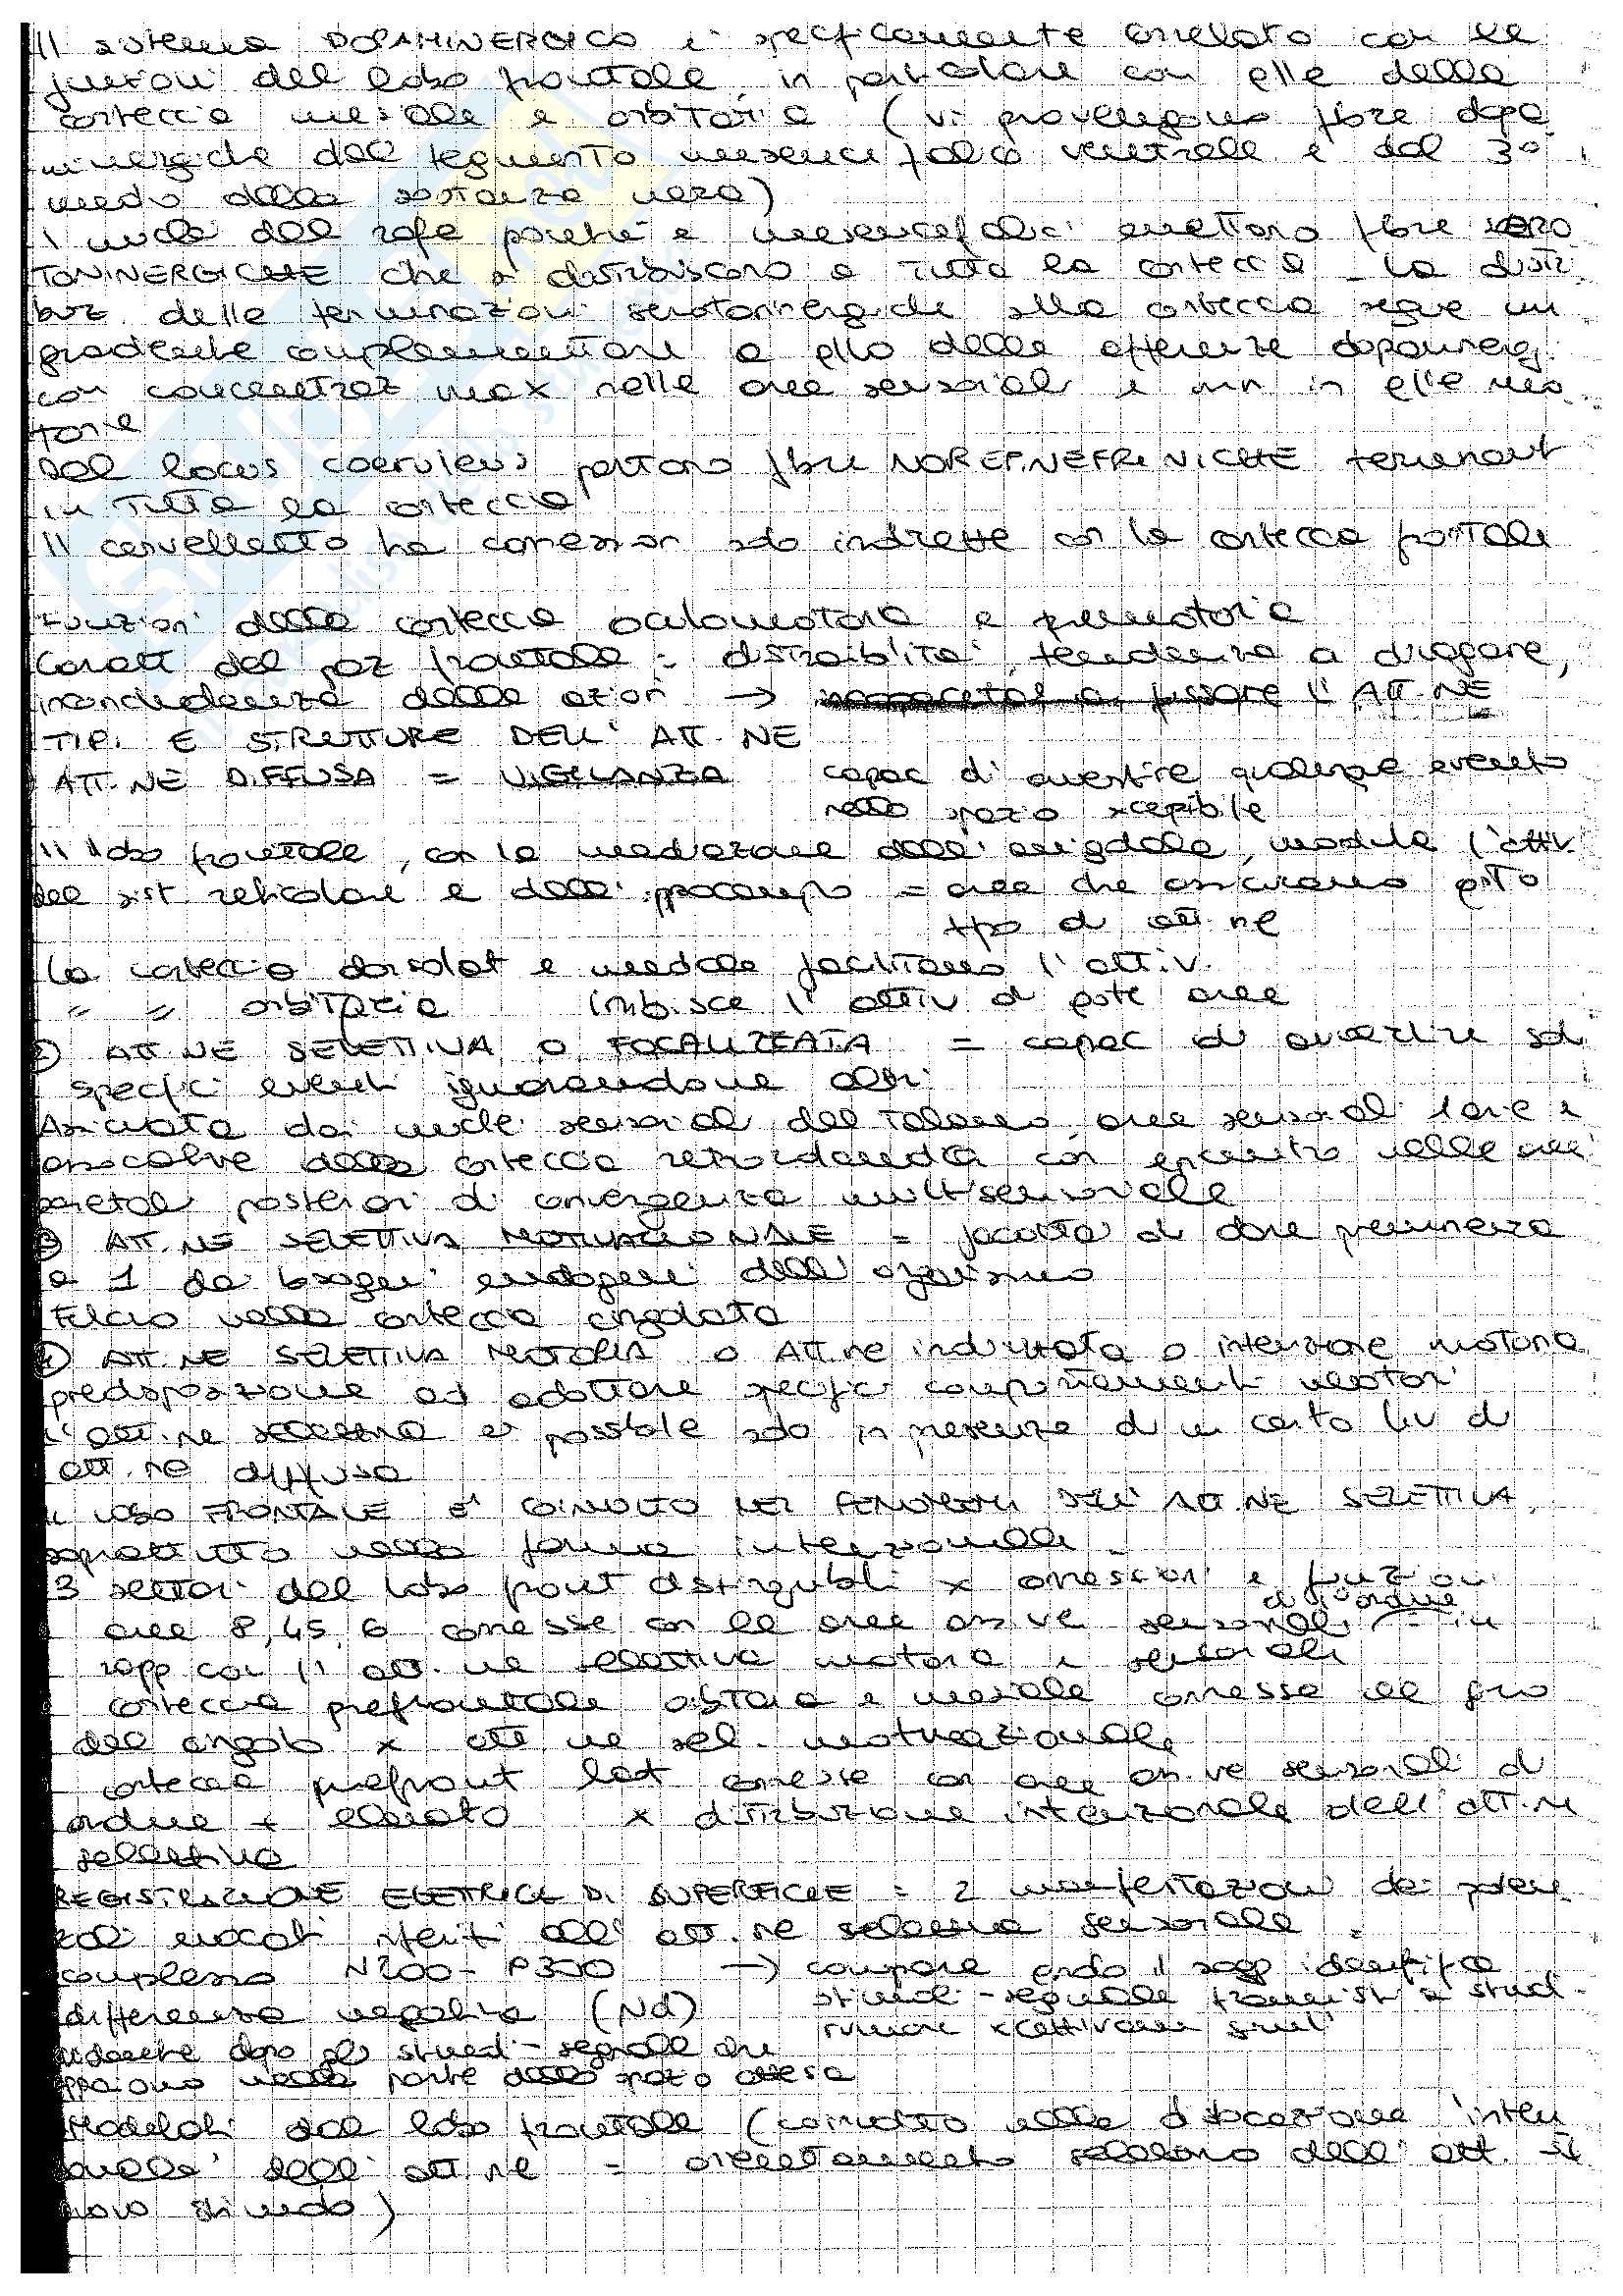 Il sistema DOPAMINERGICO è specificamente correlato con le
funzioni del lobo frontale, in particolare con q̄lle della
corteccia mesiale e orbitaria (vi provengono fibre dopa
minergiche dal tegmento mesencefalico ventrale e dal 3°
medio della sostanza nera)
I nuclei del rafe pontini e mesencefalici emettono fibre SERO
TONINERGICHE che si distribuiscono a tutta la corteccia - la distri
buz delle terminazioni serotoninergiche alla corteccia segue un
gradiente complementare a q̄llo delle afferenze dopaminerg.
con concentraz max nelle aree sensoriali e min in q̄lle mo
torie
Dal locus coeruleus partono fibre NOREPINEFRINICHE terminant
in tutta la corteccia
Il cervelletto ha connession solo indirette con la corteccia frontale
Funzioni della corteccia oculomotoria e premotoria
Caratt del paz frontale = distraibilità, tendenza a divagare,
inconcludenza delle azioni → fissare l'ATT.NE
TIPI E STRUTTURE DELL'ATT.NE
ATT.NE DIFFUSA = VIGILANZA capac di avvertire qualunque evento
nello spazio xcepibile
Il lobo frontale, con la mediazione dell'amigdala, modula l'attiv.
del sist. reticolare e dell'ippocampo = aree che assicurano q̄sto
tipo di att.ne
La corteccia dorsolat e mediale facilitano l'attiv.
" " orbitaria inibisce l'attiv di q̄ste aree
2) ATT.NE SELETTIVA O FOCALIZZATA = capac di avvertire solo
specifici eventi ignorandone altri
Assicurata dai nuclei sensoriali del talamo, aree sensoriali 1arie e
associative della corteccia retrorolandica con epicentro nelle aree
parietali posteriori di convergenza multisensoriale
3) ATT.NE SELETTIVA MOTIVAZIONALE = facoltà di dare preminenza
a 1 dei bisogni endogeni dell'organismo
Fulcro nella corteccia cingolata
4) ATT.NE SELETTIVA MOTORIA o ATT.ne indirizzata o intenzione motoria
predisposizione ad adottare specifici comportamenti motori
L'att.ne selettiva è possibile solo in presenza di un certo liv di
att.ne diffusa
IL LOBO FRONTALE E' COINVOLTO NEI FENOMENI DELL'ATT.NE SELETTIVA,
soprattutto nella forma intenzionale.
3 settori del lobo front distinguibili x connessioni e funzioni
- aree 8, 45, 6 connesse con le aree ass.ve sensoriali di 1° ordine = in
rapp con l'att.ne selettiva motoria e sensoriale
- corteccia prefrontale orbitaria e mesiale connessa al giro
del cingolo x att.ne sel. motivazionale
- corteccia prefront lat connessa con aree ass.ve sensoriali di
ordine + elevato x distribuzione intenzionale dell'att.ne
selettiva
REGISTRAZIONE ELETTRICA DI SUPERFICIE = 2 manifestazioni dei poten
ziali evocati riferiti all'att.ne selettiva sensoriale =
complesso N200-P300 → compare qndo il sogg identifica
differenza negativa (Nd) stimoli-segnale frammisti a stimoli-
rumore xcettivam simili
evidente dopo gli stimoli-segnale che
appaiono nella parte dello spazio attesa
Modulati dal lobo frontale (coinvolto nella dislocazione inten
zionale dell'att.ne = orientamento selettivo dell'att. al
nuovo stimolo)